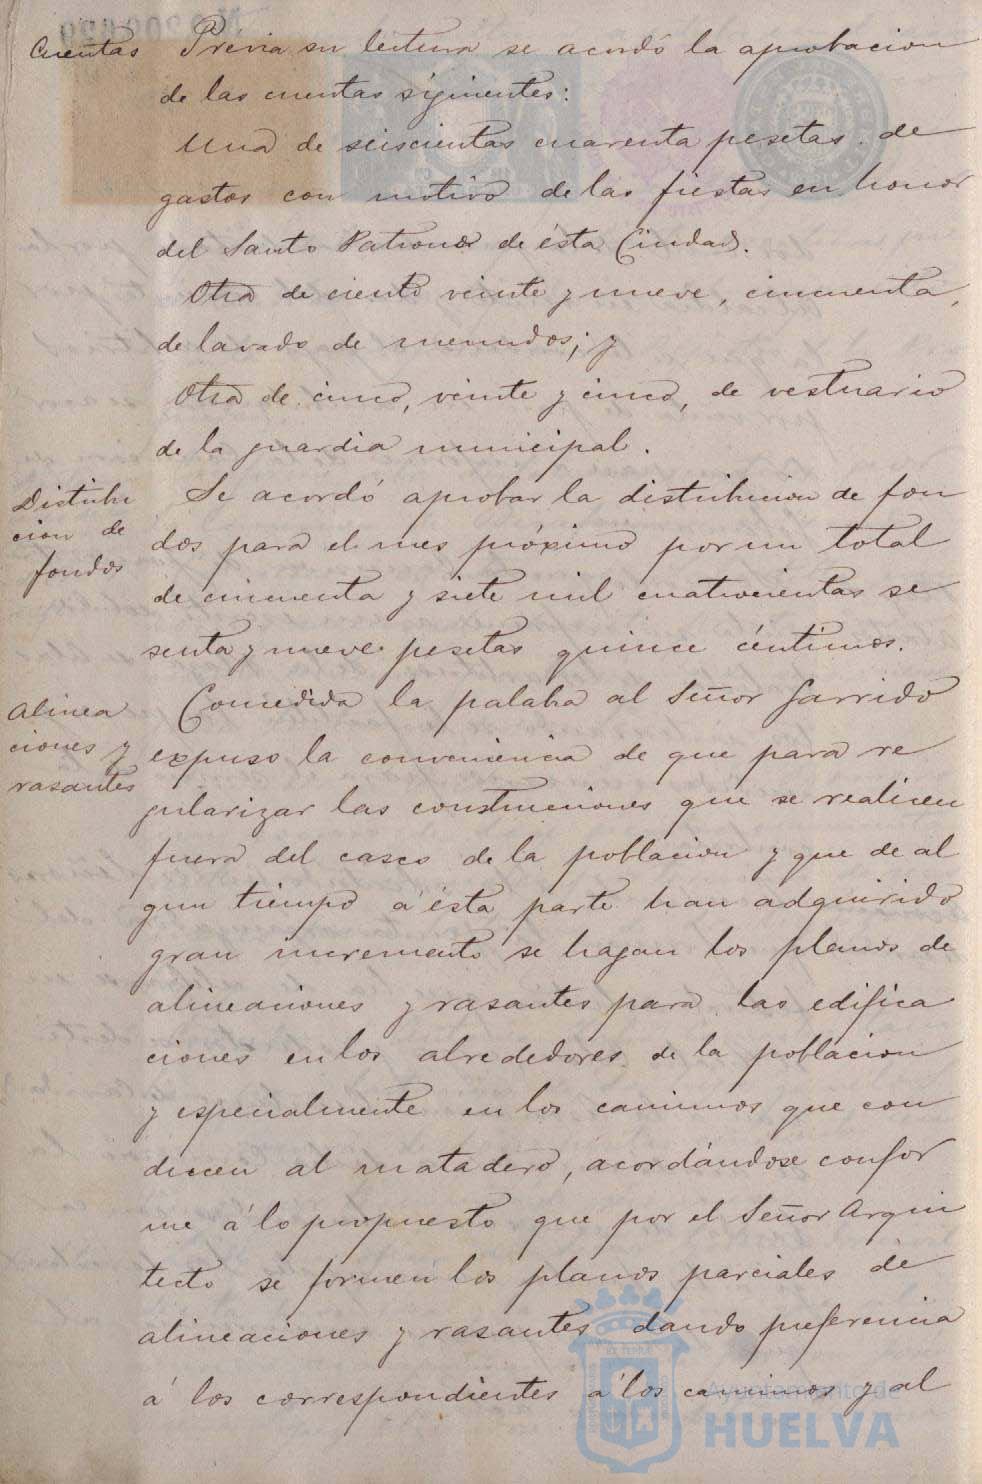 Cuentas
Previa su lectura se acordó la aprobacion
de las cuentas siguientes:
Una de seiscientas cuarenta pesetas de
gastos con motivo de las fiestas en honor
del Santo Patrono de ésta Ciudad.
Otra de ciento veinte y nueve, cincuenta,
de lavado de menudos; y
Otra de cinco, veinte y cinco, de vestuario
de la guardia municipal.
Distribu
cion de
fondos
Se acordó aprobar la distribucion de fon
dos para el mes próximo por un total
de cincuenta y siete mil cuatrocientas se
senta y nueve pesetas quince céntimos.
Alinea
ciones y
rasantes
Concedida la palabra al Señor Garrido
expuso la conveniencia de que para re
gularizar las construcciones que se realicen
fuera del casco de la poblacion y que de al
gun tiempo á ésta parte han adquirido
gran incremento se hagan los planos de
alineaciones y rasantes para las edifica
ciones en los alrededores de la poblacion
y especialmente en los caminos que con
ducen al matadero, acordándose confor
me á lo propuesto que por el Señor Arqui
tecto se formen los planos parciales de
alineaciones y rasantes dando preferencia
á los correspondientes á los caminos y al
Ayuntamiento de
HUELVA